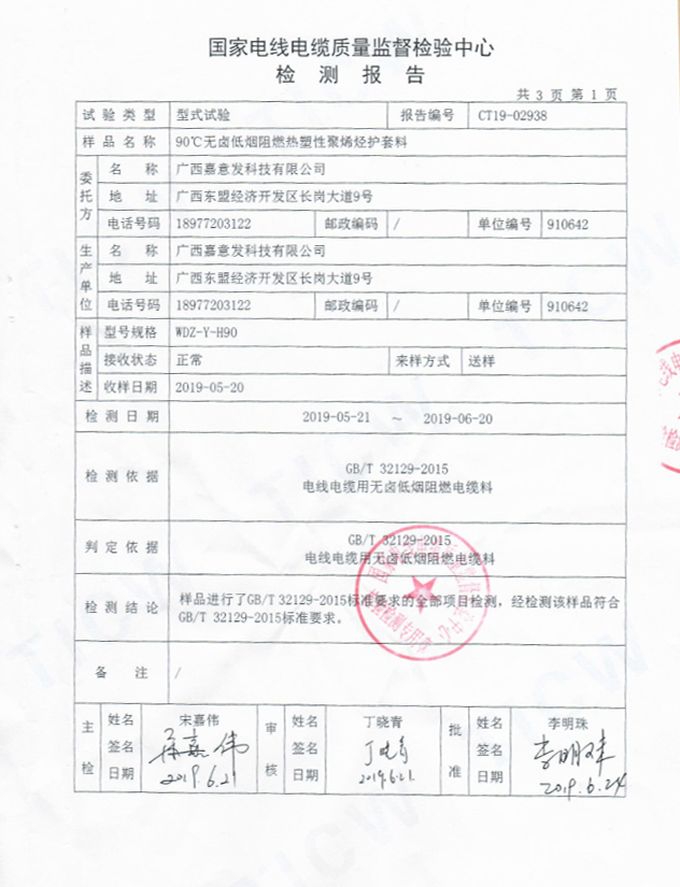 国家电线电缆质量监督检验中心
检 测 报 告
共 3 页 第 1 页
试 验 类 型 型式试验 报告编号 CT19-02938
样 品 名 称 90℃无卤低烟阻燃热塑性聚烯烃护套料
委托方
名 称 广西嘉意发科技有限公司
地 址 广西东盟经济开发区长岗大道9号
电话号码 18977203122 邮政编码 / 单位编号 910642
生产单位
名 称 广西嘉意发科技有限公司
地 址 广西东盟经济开发区长岗大道9号
电话号码 18977203122 邮政编码 / 单位编号 910642
样品描述
型号规格 WDZ-Y-H90
接收状态 正常 来样方式 送样
收样日期 2019-05-20
检 测 日 期 2019-05-21 ~ 2019-06-20
检 测 依 据 GB/T 32129-2015
电线电缆用无卤低烟阻燃电缆料
判 定 依 据 GB/T 32129-2015
电线电缆用无卤低烟阻燃电缆料
检 测 结 论 样品进行了GB/T 32129-2015标准要求的全部项目检测，经检测该样品符合
GB/T 32129-2015标准要求。
备 注 /
主检 姓名 宋嘉伟 审核 姓名 丁晓青 批准 姓名 李明珠
签名 宋嘉伟 签名 丁晓青 签名 李明珠
日期 2019.6.21 日期 2019.6.21. 日期 2019.6.24
检测专用章
TICW